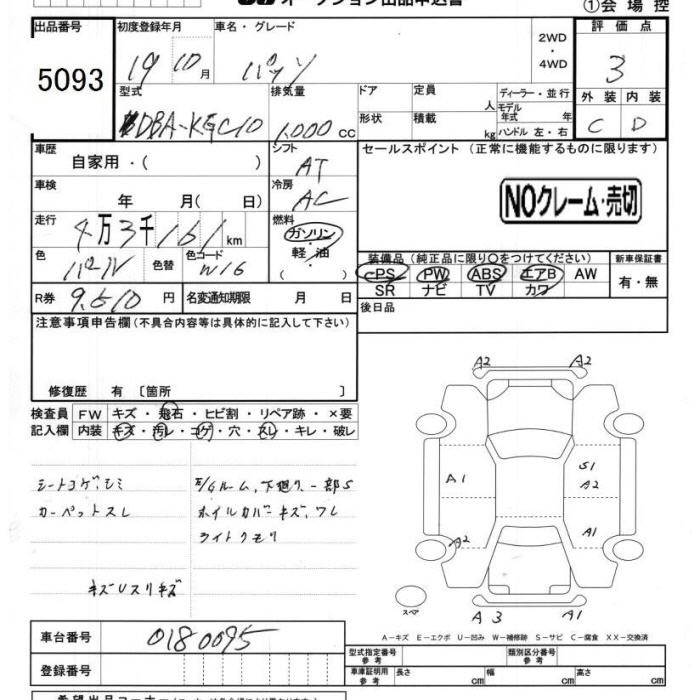 オークション出品申込書
①会場控
出品番号 初度登録年月 車名・グレード 2WD・4WD 評価点
5093 19 10月 パッソ 3
型式 排気量 ドア 定員 人 ディーラー・並行 外装 内装
DBA-KGC10 1,000 cc 形状 積載 kg モデル年式 年 ハンドル 左・右 C D
車歴 自家用・( ) シフト AT セールスポイント(正常に機能するものに限ります)
車検 年 月(日) 冷房 AC NOクレーム・売切
走行 4万3千161km 燃料 ガソリン・軽油
色 パール 色替 色コード W16 装備品(純正品に限り○をつけてください) 新車保証書
PS PW ABS エアB AW 有・無
SR ナビ TV カワ
R券 9,510円 名変通知期限 月 日 後日品
注意事項申告欄(不具合内容等は具体的に記入して下さい)
修復歴 有〔箇所 〕
検査員 FW キズ・飛石・ヒビ割・リペア跡・×要
記入欄 内装 キズ・汚レ・コゲ・穴・スレ・キレ・破レ
シートコゲ、シミ E/Gルーム、下廻り、一部S
カーペットスレ ホイルカバーキズ、ワレ
ライトクモリ
キズUスリキズ
A2 A2
A1 S1
A2
A2 A1
スペア A3 A1
A－キズ E－エクボ U－凹み W－補修跡 S－サビ C－腐食 XX－交換済
車台番号 0180095
型式指定番号 参考 類別区分番号 参考
登録番号 車庫証明用 参考 長さ cm 幅 cm 高さ cm